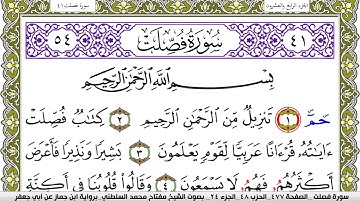 الجزء الرابع والعشرون
سورة فصلت ٤١
٤١ سُورَةُ فُصِّلَتْ ٥٤
بِسْمِ اللَّهِ الرَّحْمَٰنِ الرَّحِيمِ
حمٓ ١ تَنزِيلٌ مِّنَ الرَّحْمَٰنِ الرَّحِيمِ ٢ كِتَابٌ فُصِّلَتْ
ءَايَٰتُهُۥ قُرْءَانًا عَرَبِيًّا لِّقَوْمٍ يَعْلَمُونَ ٣ بَشِيرًا وَنَذِيرًا فَأَعْرَضَ
أَكْثَرُهُمْ فَهُمْ لَا يَسْمَعُونَ ٤ وَقَالُوا۟ قُلُوبُنَا فِىٓ أَكِنَّةٍ
سورة فصلت _ الصفحة ٤٧٧ _ الحزب ٤٨ _ الجزء ٢٤ _ بصوت الشيخ مفتاح محمد السلطني _ برواية ابن جماز عن أبي جعفر